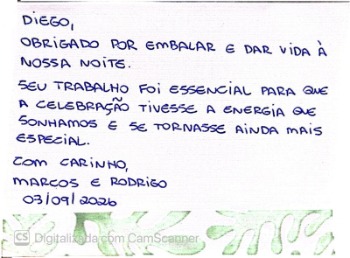 DIEGO,
OBRIGADO POR EMBALAR E DAR VIDA À
NOSSA NOITE.
SEU TRABALHO FOI ESSENCIAL PARA QUE
A CELEBRAÇÃO TIVESSE A ENERGIA QUE
SONHAMOS E SE TORNASSE AINDA MAIS
ESPECIAL.
COM CARINHO,
MARCOS E RODRIGO
03/09/2026
CS Digitalizada com CamScanner